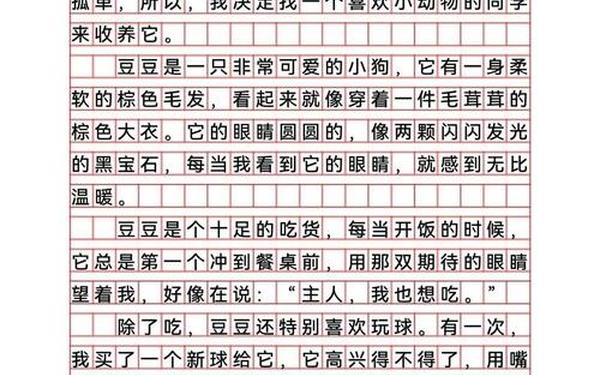 孤单，所以，我决定找一个喜欢小动物的同学
来收养它。
豆豆是一只非常可爱的小狗，它有一身柔
软的棕色毛发，看起来就像穿着一件毛茸茸的
棕色大衣。它的眼睛圆圆的，像两颗闪闪发光
的黑宝石，每当我看到它的眼睛，就感到无比
温暖。
豆豆是个十足的吃货，每当开饭的时候，
它总是第一个冲到餐桌前，用那双期待的眼睛
望着我，好像在说：“主人，我也想吃。”
除了吃，豆豆还特别喜欢玩球。有一次，
我买了一个新球给它，它高兴得不得了，用嘴